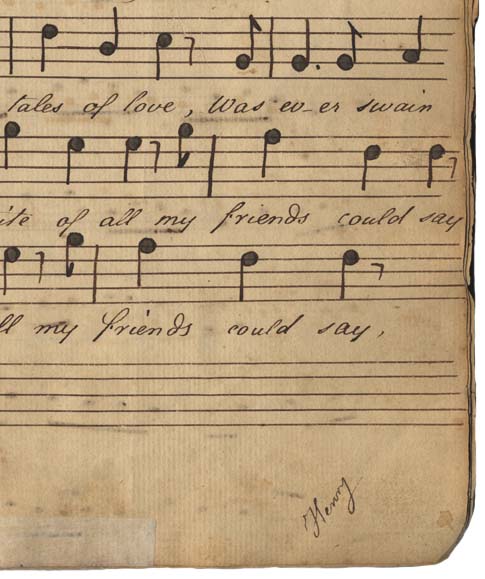 tales of love, Was ev-er swain
ite of all my friends could say
ll my friends could say,
Henry